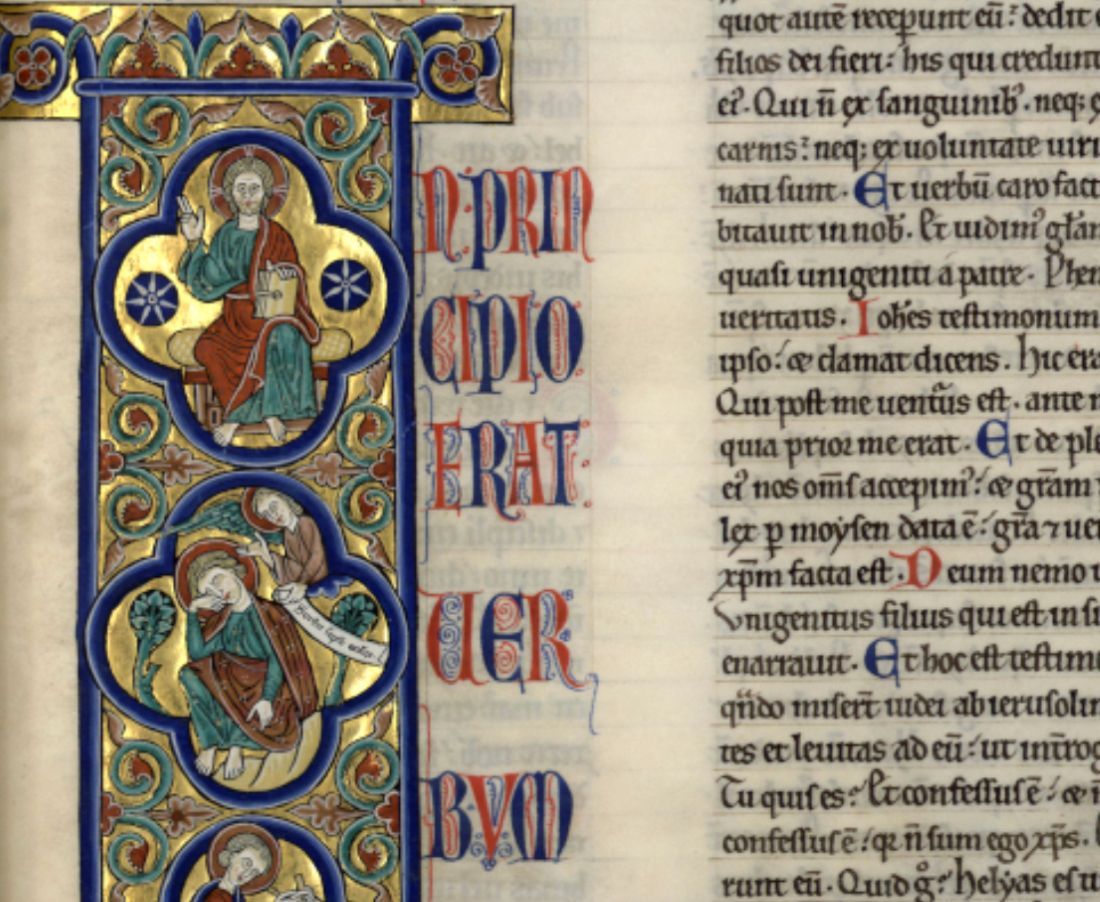 N·PRIN
CIPIO
ERAT:
UER
BVM
quot autē recepunt eū: dedit
filios dei fieri: his qui credunt
ei᷒. Qui n̄ ex sanguinib᷒. neq;
carnis: neq; ex uoluntate uiri
nati sunt. Et uerbū caro fact
bitauit in nob. Et uidim᷒ glām
quasi unigeniti a patre. Plen
ueritatis. Iohēs testimonium
ipso: & clamat dicens. Hic era
Qui post me uentūs est. ante
quia prior me erat. Et de ple
ei᷒ nos om̄s accepim᷒: & grām
lex p moẏsen data ē: grā ⁊ uer
xp̄m facta est. Deum nemo
Vnigenitus filius qui est in
enarrauit. Et hoc est testim
qn̄do miser̄t iudei ab ierusolim
tes et leuitas ad eū: ut int̄rog
Tu quis es: Et confessus ē: &
confessus ē: qꝛ n̄ sum ego xp̄s.
runt eū. Quid g°: helẏas es